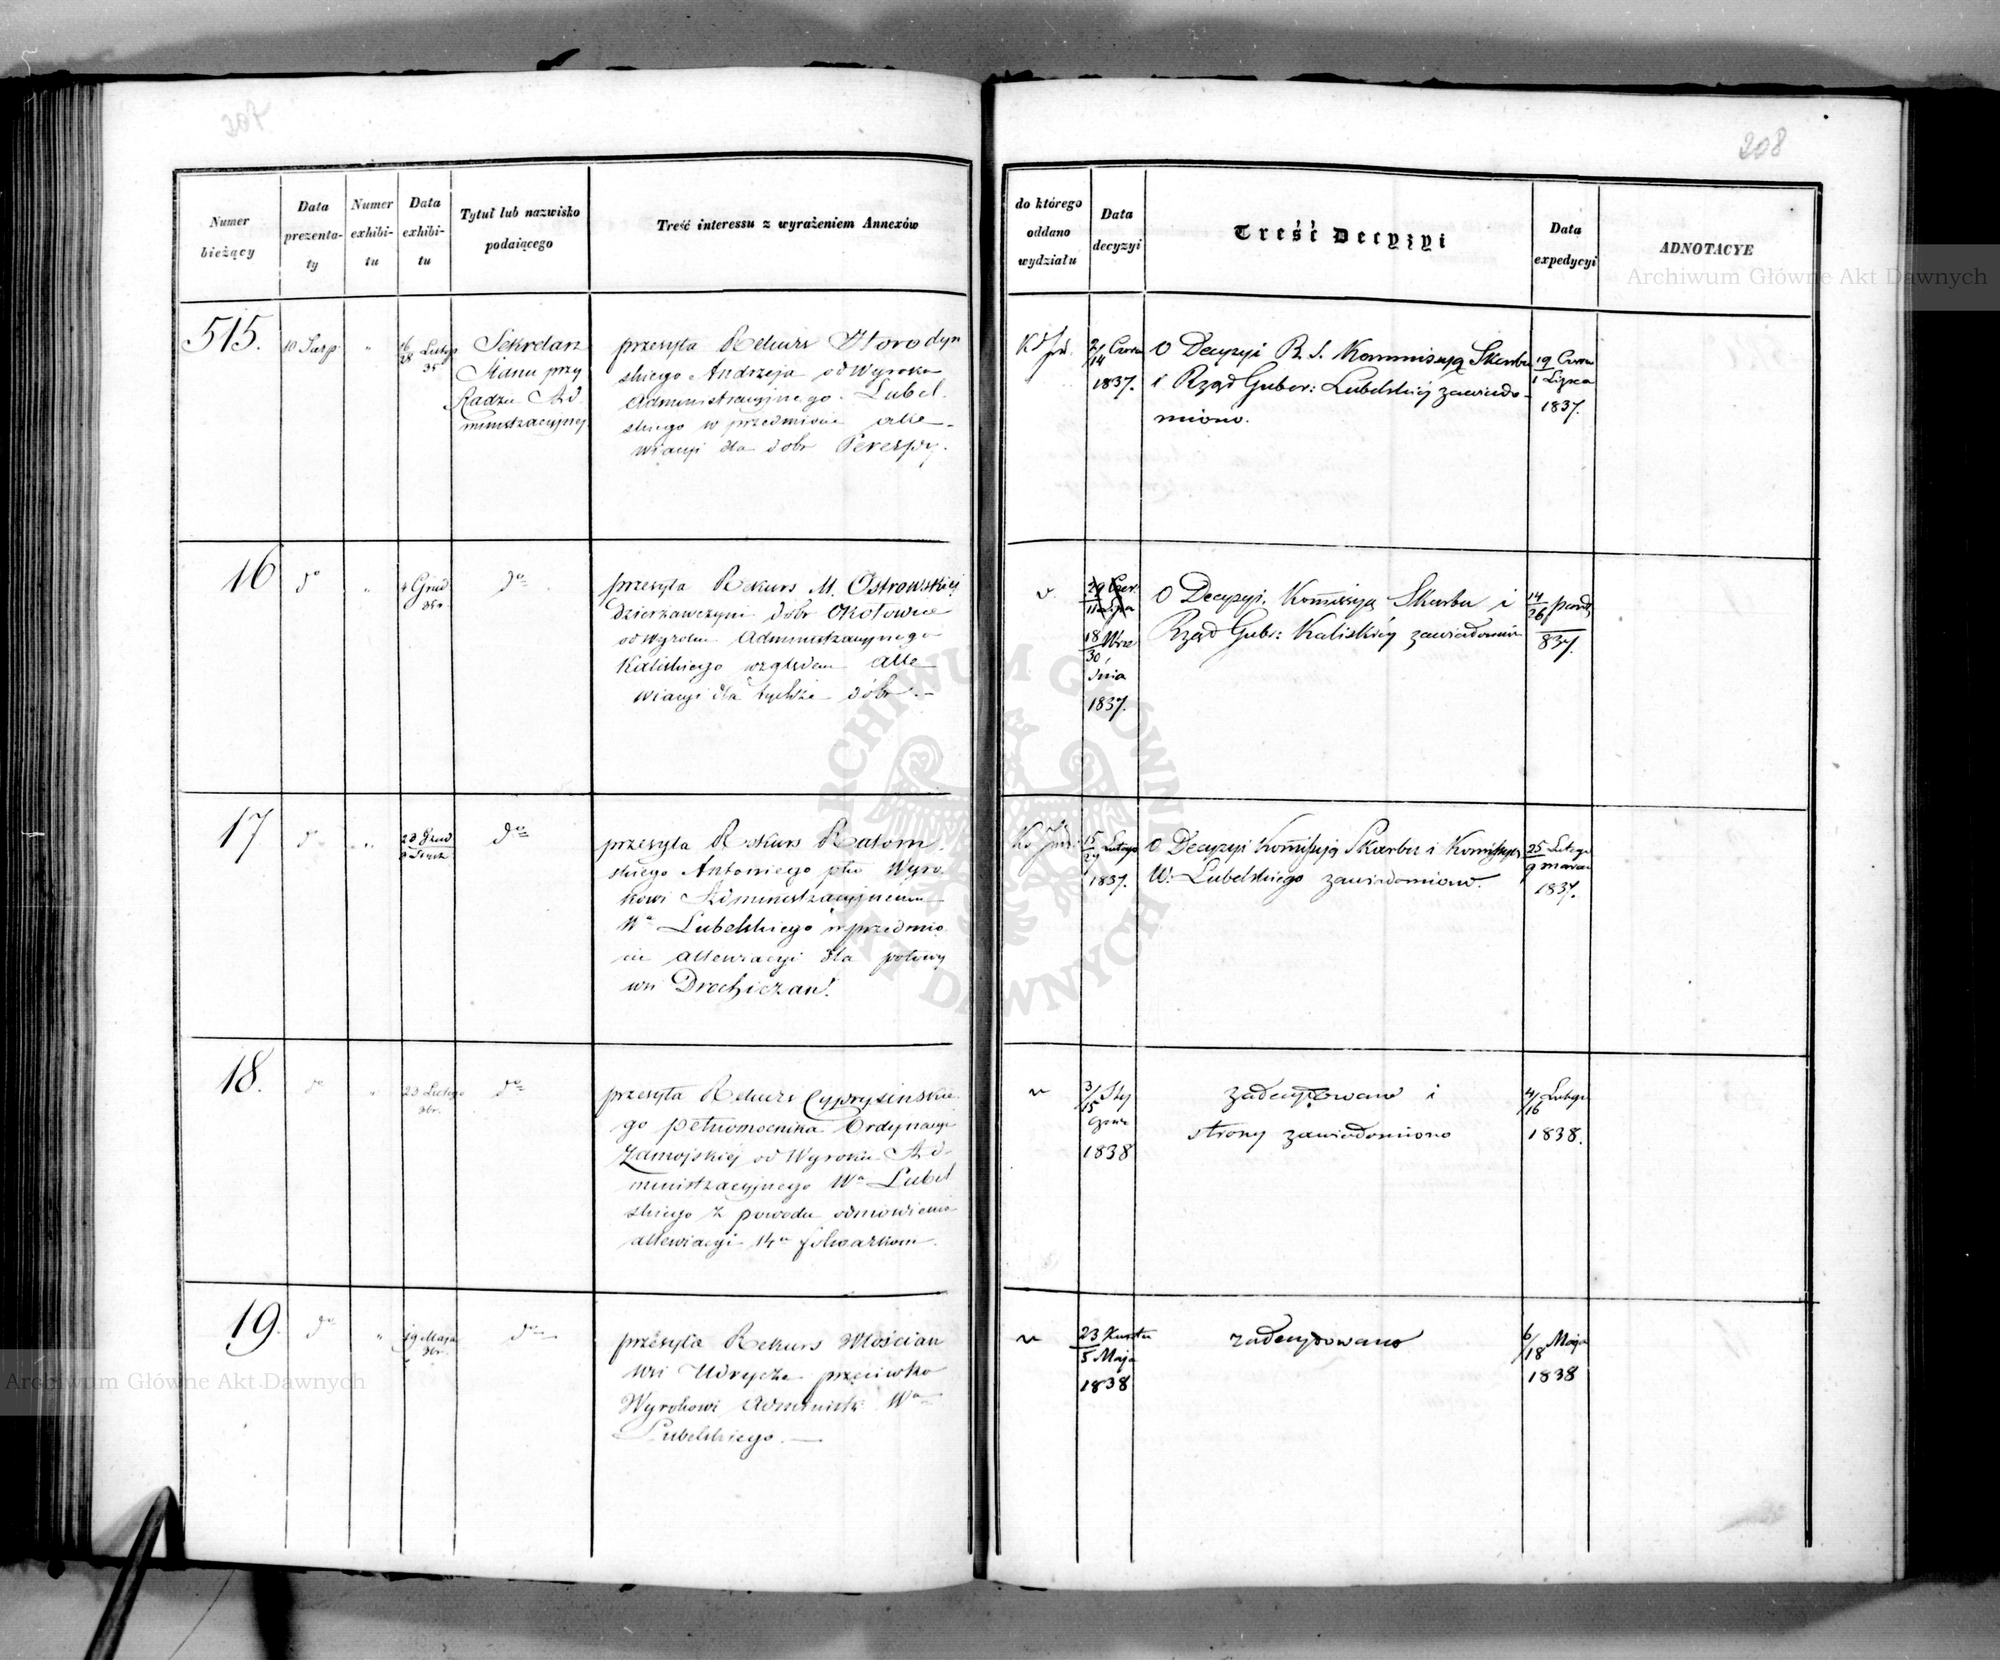 207
208
Numer bieżący
Data prezentaty
Numer exhibitu
Data exhibitu
Tytuł lub nazwisko podaiącego
Treść interessu z wyrażeniem Annexów
do którego oddano wydziału
Data decyzyi
Treść Decyzyi
Data expedycyi
ADNOTACYE
515.
10 Sierp
"
16/28 Lutego
35
Sekretarz
Stanu przy
Radzie Ad
ministracyjnej
przesyła Rekurs Horodyń
skiego Andrzeja od Wyroku
Administracyjnego Lubel
skiego w przedmiocie alle-
wiacyi dla dobr Perespy.
2/14 Czerw
1837.
O Decyzyi R. S. Kommissyą Skarbu
i Rząd Guber: Lubelskiéj zawiado-
miono.
19 Czerw
1 Lipca
1837.
16
do
"
4 Grud
do
przesyła Rekurs M. Ostrowskiéj
dzierzawczyni dobr Okołowice
od Wyroku Administracyjnego
Kaliskiego względem alle
wiacyi dla tychże dóbr. —
18/30 Wrze
śnia
1837.
O Decyzyi Kommissyą Skarbu i
Rząd Gube: Kaliskiéj zawiadomio
14/26 Pazdz
837.
17
do
"
do
przesyła Rekurs Ratom
skiego Antoniego pko Wyro
kowi Administracyjnemu
Wa Lubelskiego w przedmio
cie allewiacyi dla połowy
wsi Drochiczan.
Lutego
1837.
O Decyzyi Kommissyą Skarbu i Kommissyą
W: Lubelskiego zawiadomiono.
25 Lutego
9 marca
1837.
18.
do
"
23 Lutego
do
przesyła Rekurs Cyprysinskie
go pełnomocnika Ordynacyi
Zamojskiej od Wyroku Ad
ministracyjnego Wa Lubel
skiego z powodu odmówienia
allewiacyi 14u folwarkom.
3/15 Sty
cznia
1838
zadecydowano i
strony zawiadomiono
4/16 Lutego
1838.
19.
do
"
19 Maja
do
przesyła Rekurs Włościan
wsi Udrycze przeciwko
Wyrokowi Administr: Wa
Lubelskiego. —
23 Kwiet
5 Maja
1838
zadecydowano
6/18 Maja
1838
Archiwum Główne Akt Dawnych
Archiwum Główne Akt Dawnych
ARCHIWUM GŁÓWNE AKT DAWNYCH